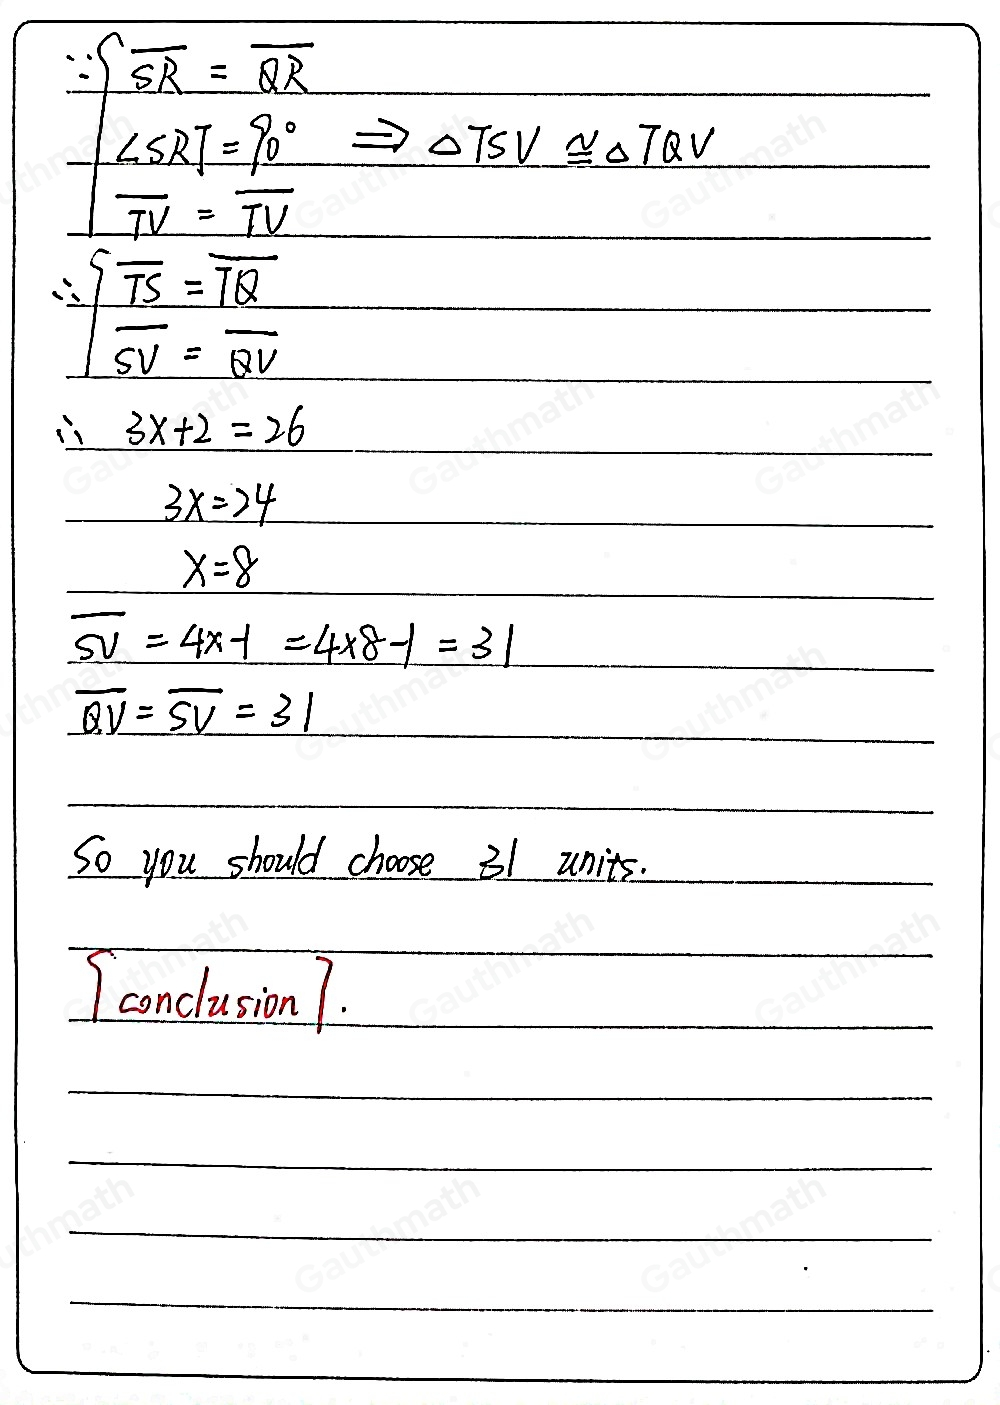 ∵ { SR = QR
∠SRT = 90° ⇒ △TSV ≅ △TQV
TV = TV
∴ { TS = TQ
SV = QV
∴ 3x+2 = 26
3x=24
x=8
SV = 4x-1 = 4×8-1 = 31
QV = SV = 31
So you should choose 31 units.
[conclusion].
Gauthmath